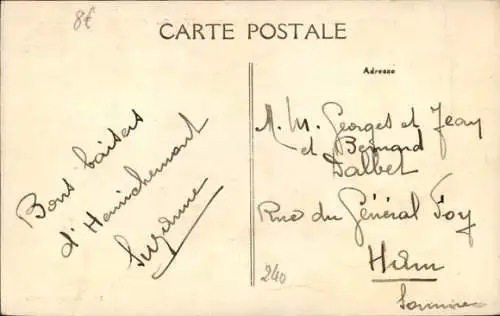 8€
CARTE POSTALE
Adresse
Bons baisers
d'Henrichemont
Suzanne
M. M. Georges et Jean
et Bernard
Dalbet
Rue du Général Foy
Ham
Somme
240